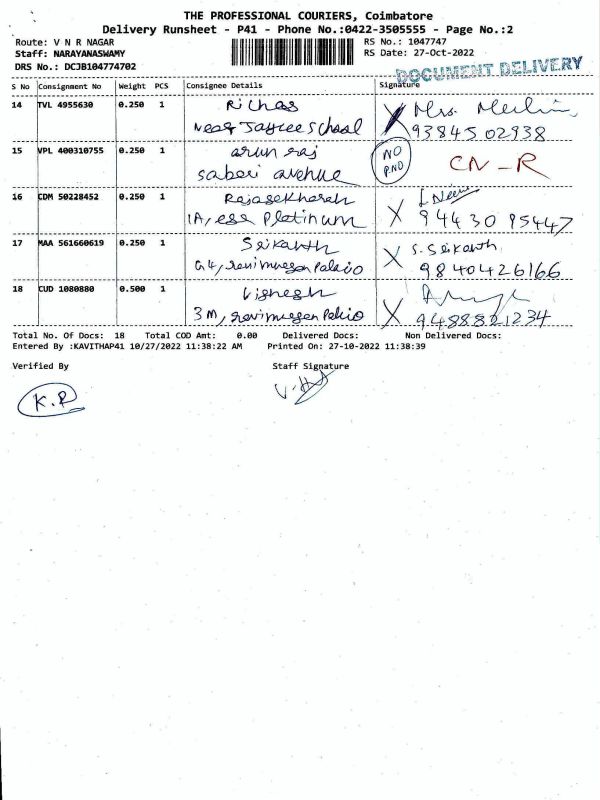 THE PROFESSIONAL COURIERS, Coimbatore
Delivery Runsheet - P41 - Phone No.:0422-3505555 - Page No.:2
Route: V N R NAGAR RS No.: 1047747
Staff: NARAYANASWAMY RS Date: 27-Oct-2022
DRS No.: DCJB104774702 DOCUMENT DELIVERY
S No Consignment No Weight PCS Consignee Details Signature
14 TVL 4955630 0.250 1 Richas X Mrs. Merlin
Near Jayree School 93845 02938
15 VPL 400310755 0.250 1 arun raj NO P.NO CN-R
saberi avenue
16 CDM 50228452 0.250 1 Rajasekharan X
1A, esa Platinum 94430 95447
17 MAA 561660619 0.250 1 Srikanth X S. Srikanth
G4, ravimurugan Palacio 9840426166
18 CUD 1080880 0.500 1 Vignesh X
3M, ravimurugan Palacio 9488821234
Total No. Of Docs: 18 Total COD Amt: 0.00 Delivered Docs: Non Delivered Docs:
Entered By :KAVITHAP41 10/27/2022 11:38:22 AM Printed On: 27-10-2022 11:38:39
Verified By Staff Signature
K.R